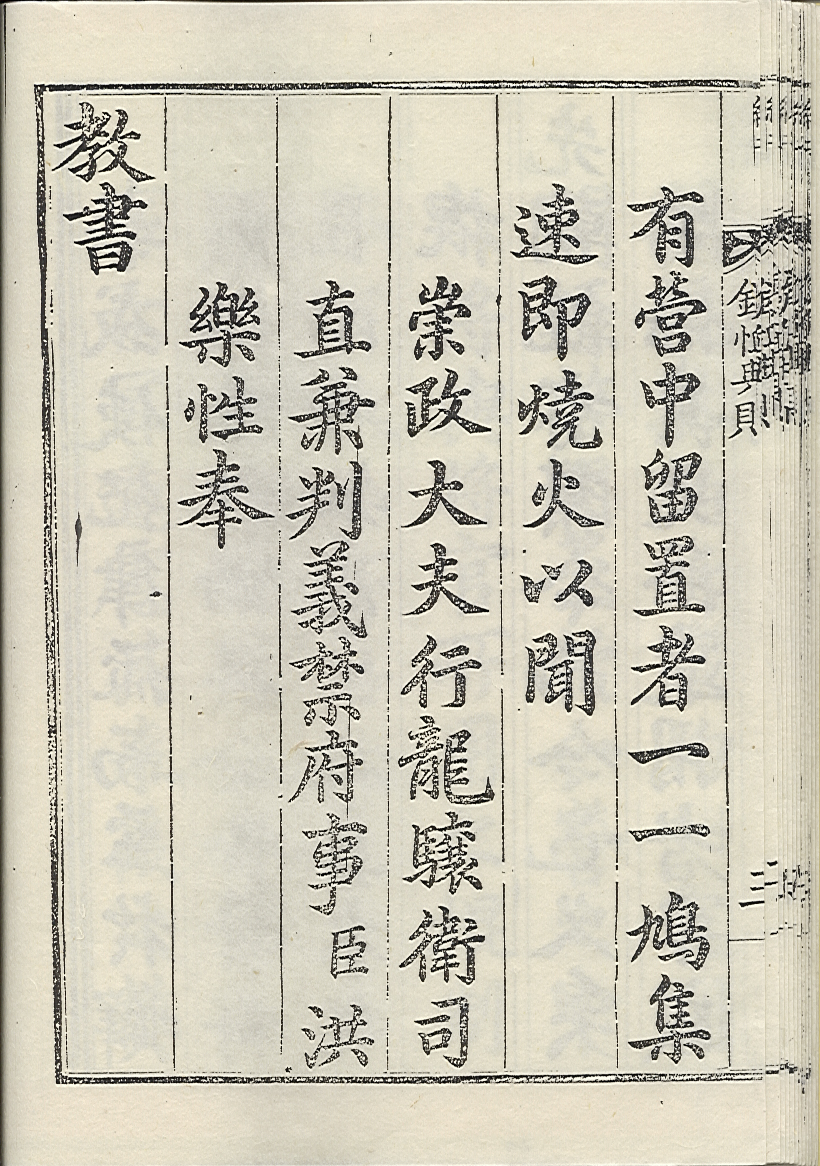 有營中留置者一一鳩集
速即燒火以聞
崇政大夫行龍驤衛司
直兼判義禁府事臣洪
樂性奉
教書
三